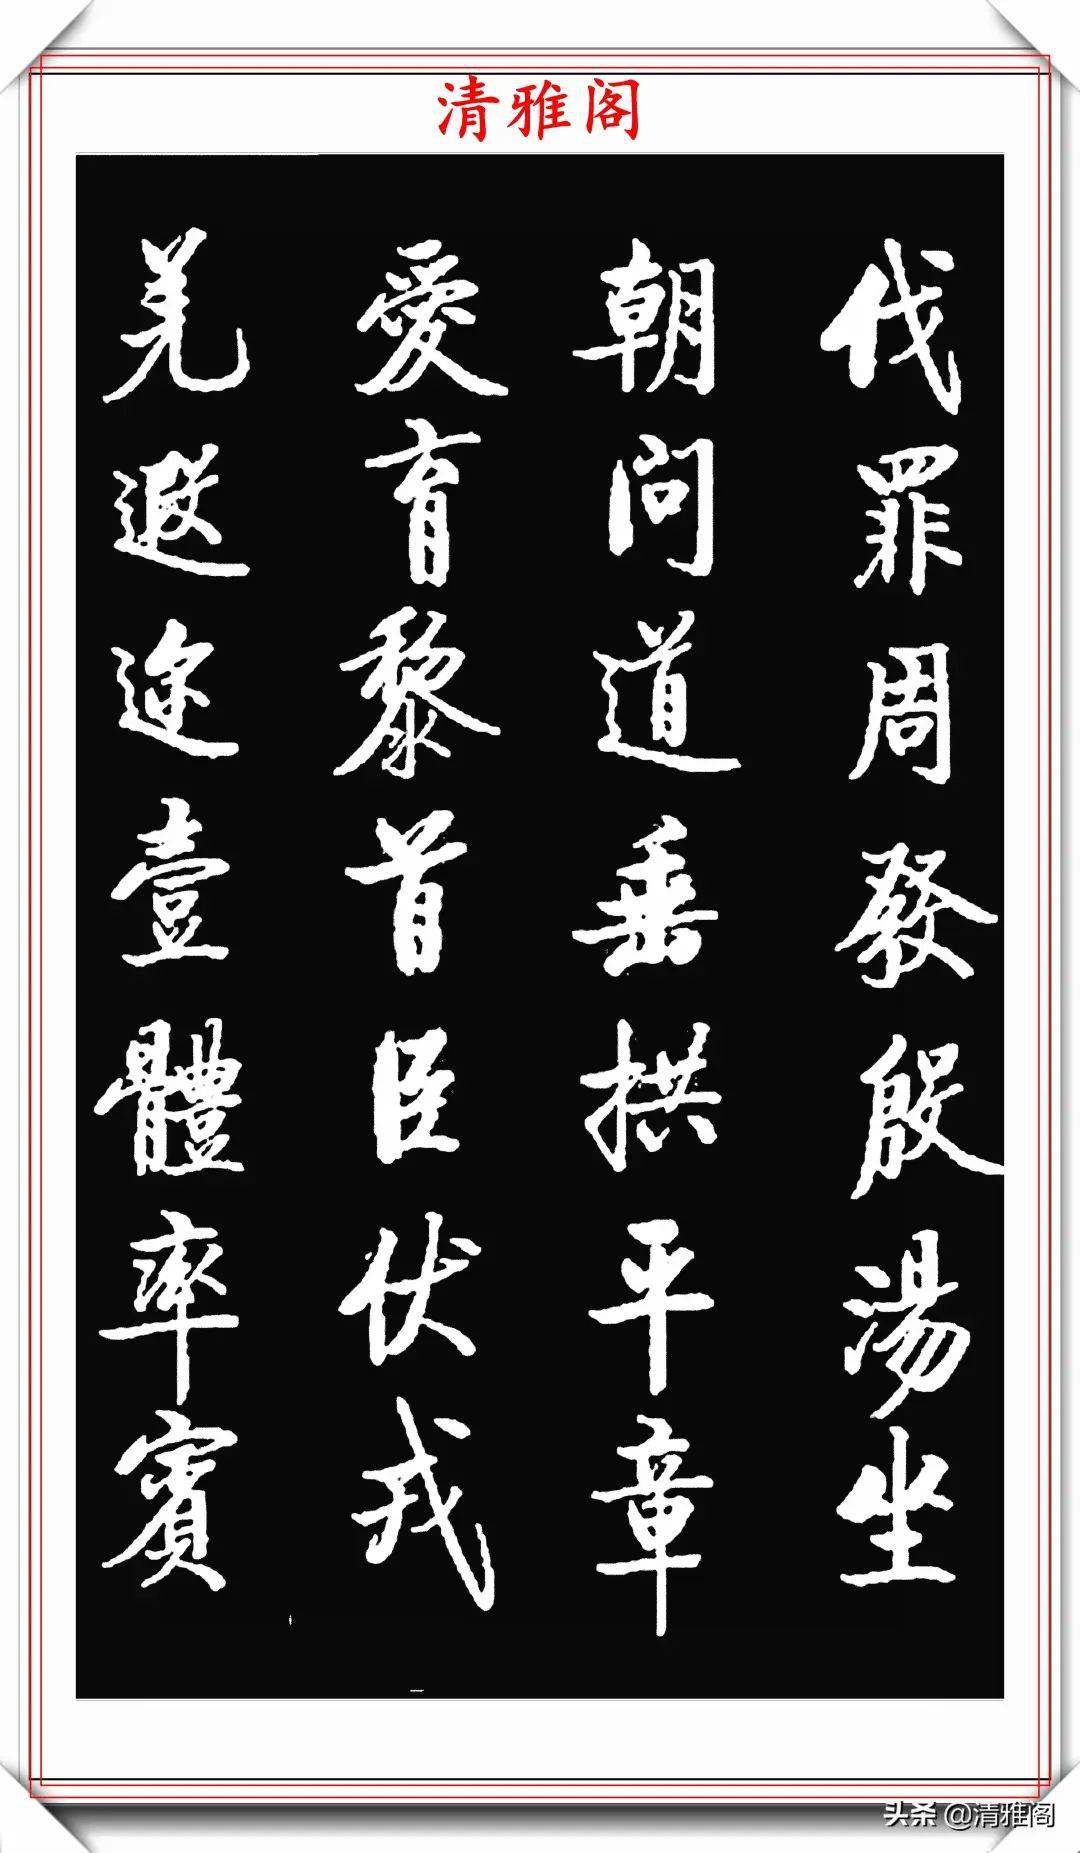 清雅阁
伐罪周發殷湯坐
朝问道垂拱平章
愛育黎首臣伏戎
羌遐迩壹體率賓
头条 @清雅阁